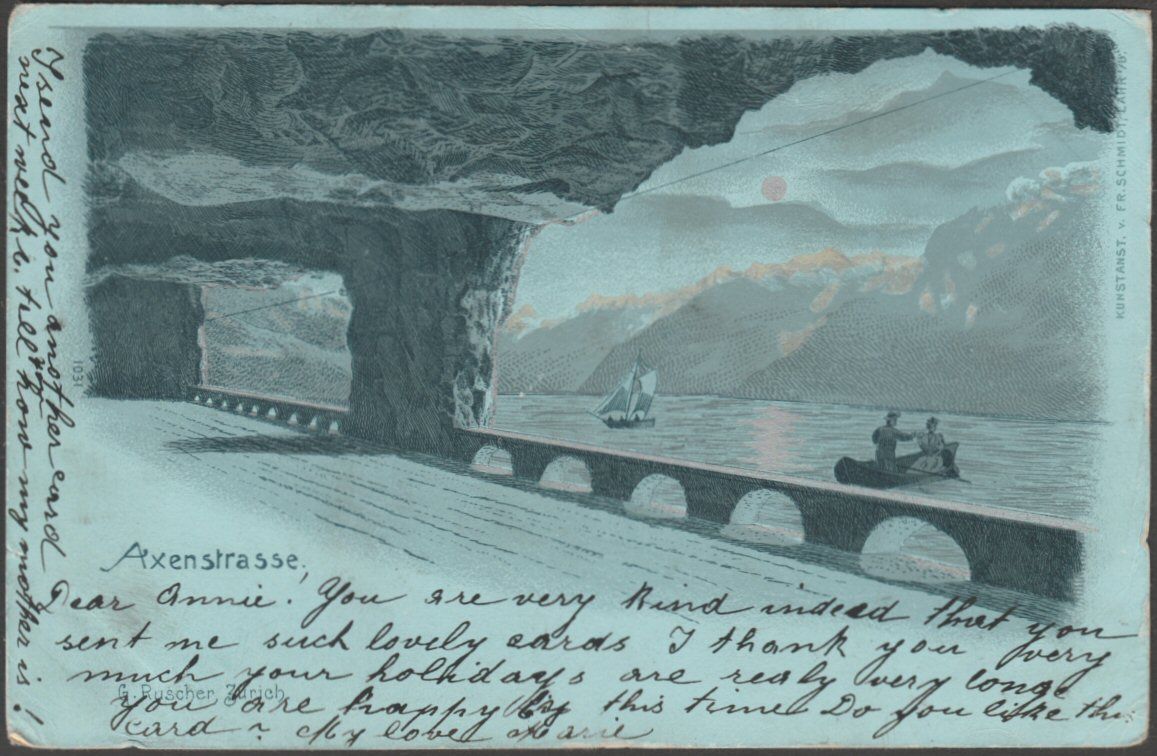 Axenstrasse.
Dear Annie! You are very kind indeed that you
sent me such lovely cards I thank you very
much your holidays are realy very long
you are happy by this time Do you like this
card ? My love Marie
I send you another card
next week i. tell you how my mother is !
G. Ruscher, Zürich
1031
KUNSTANST. v. FR. SCHMIDT, LAHR i/B.